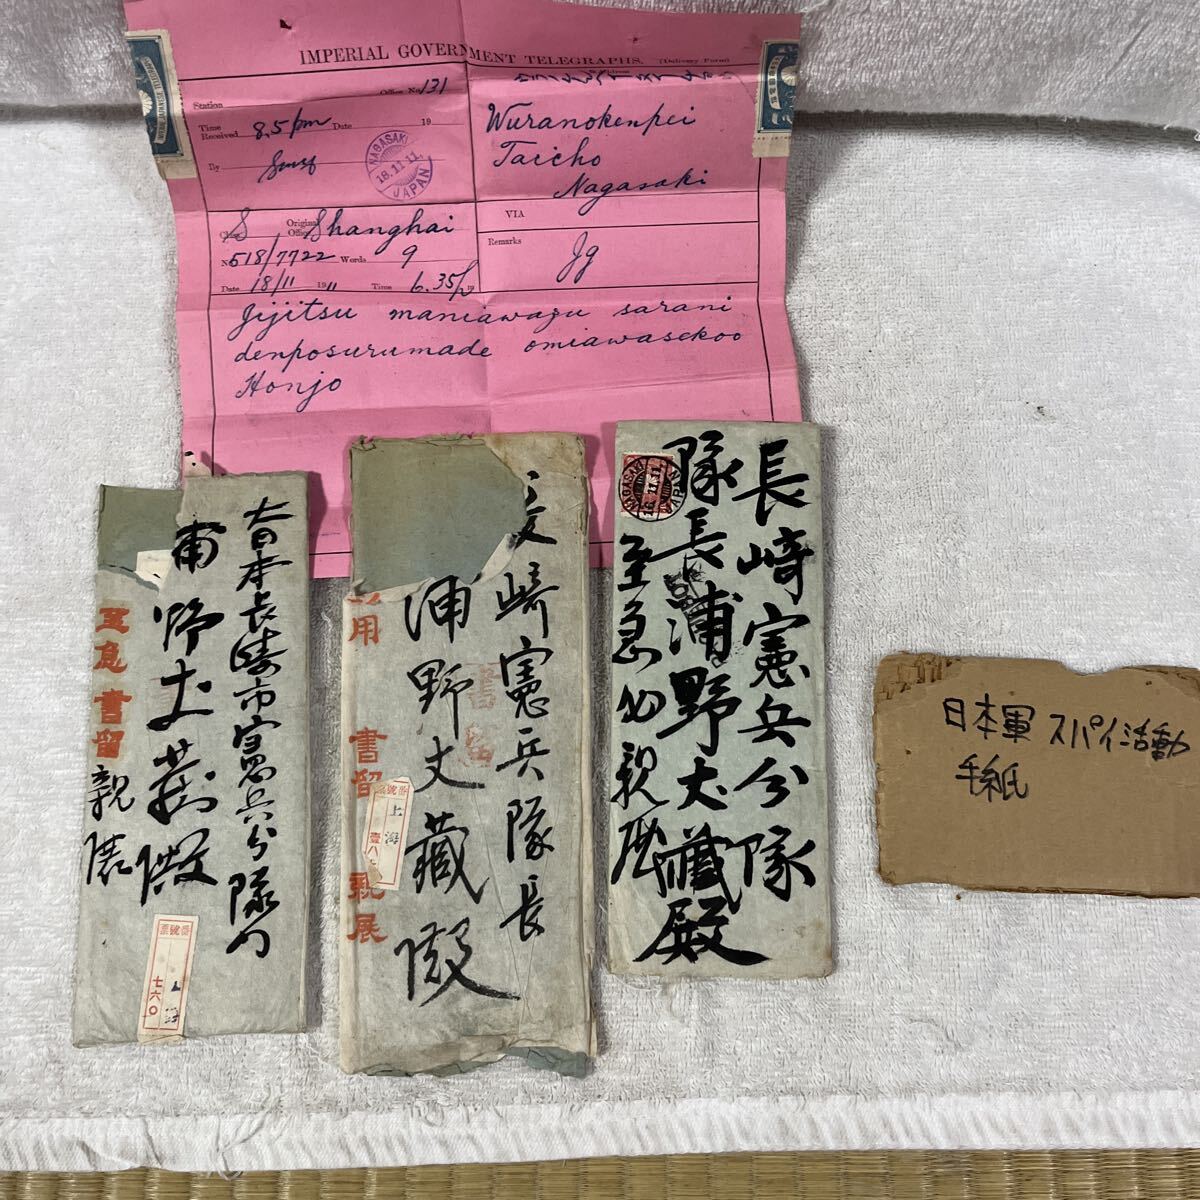 IMPERIAL GOVERNMENT TELEGRAPHS. (Delivery Form)
Station
Office No. 131
Time Received 8.5 pm Date 19
By
NAGASAKI
18.11.11.
JAPAN
Wuranokenpei
Taicho
Nagasaki
Class S Original Office Shanghai
VIA
No 518/7722 Words 9
Remarks Jg
Date 18/11 1911 Time 6.35 p m
Jijitsu maniawazu sarani
denposurumade omiawasekoo
Honjo
大日本長崎市憲兵分隊内
野丈蔵殿
至急 書留
親展
番號票
上海
七六〇
崎憲兵隊長
浦野丈藏殿
用 書留 親展
書留
番號票
上海
壹八
長崎憲兵分隊
隊長浦野丈藏殿
至急必親展
NAGASAKI
18.11.11.
JAPAN
日本軍 スパイ活動
手紙